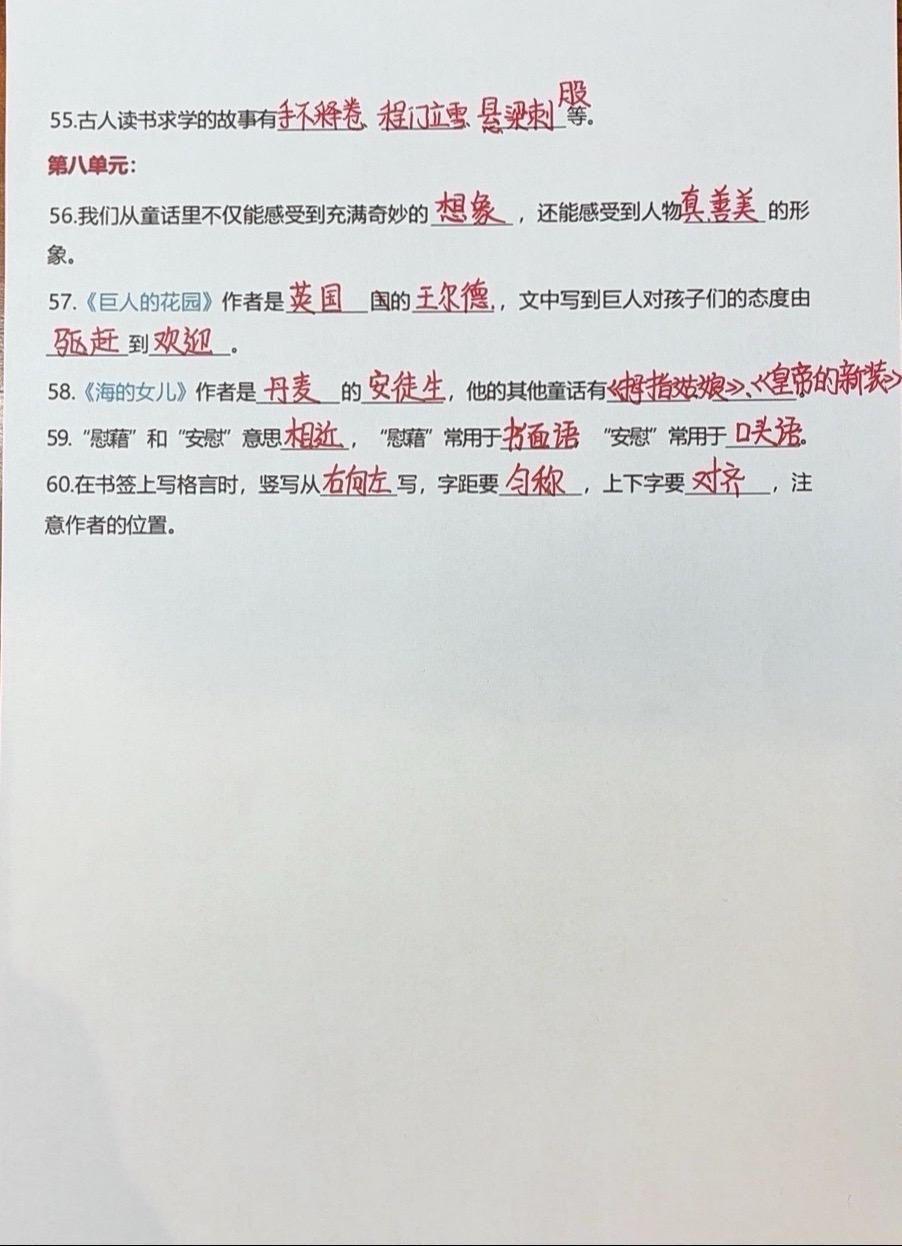 55.古人读书求学的故事有手不释卷 程门立雪 悬梁刺股等。
第八单元：
56.我们从童话里不仅能感受到充满奇妙的 想象 ，还能感受到人物真善美 的形
象。
57.《巨人的花园》作者是 英国 国的 王尔德 ，文中写到巨人对孩子们的态度由
驱赶 到 欢迎 。
58.《海的女儿》作者是 丹麦 的 安徒生 ，他的其他童话有《拇指姑娘》、《皇帝的新装》。
59.“慰藉”和“安慰”意思相近 ，“慰藉”常用于书面语 “安慰”常用于 口头语。
60.在书签上写格言时，竖写从右向左写，字距要 匀称 ，上下字要 对齐 ，注
意作者的位置。